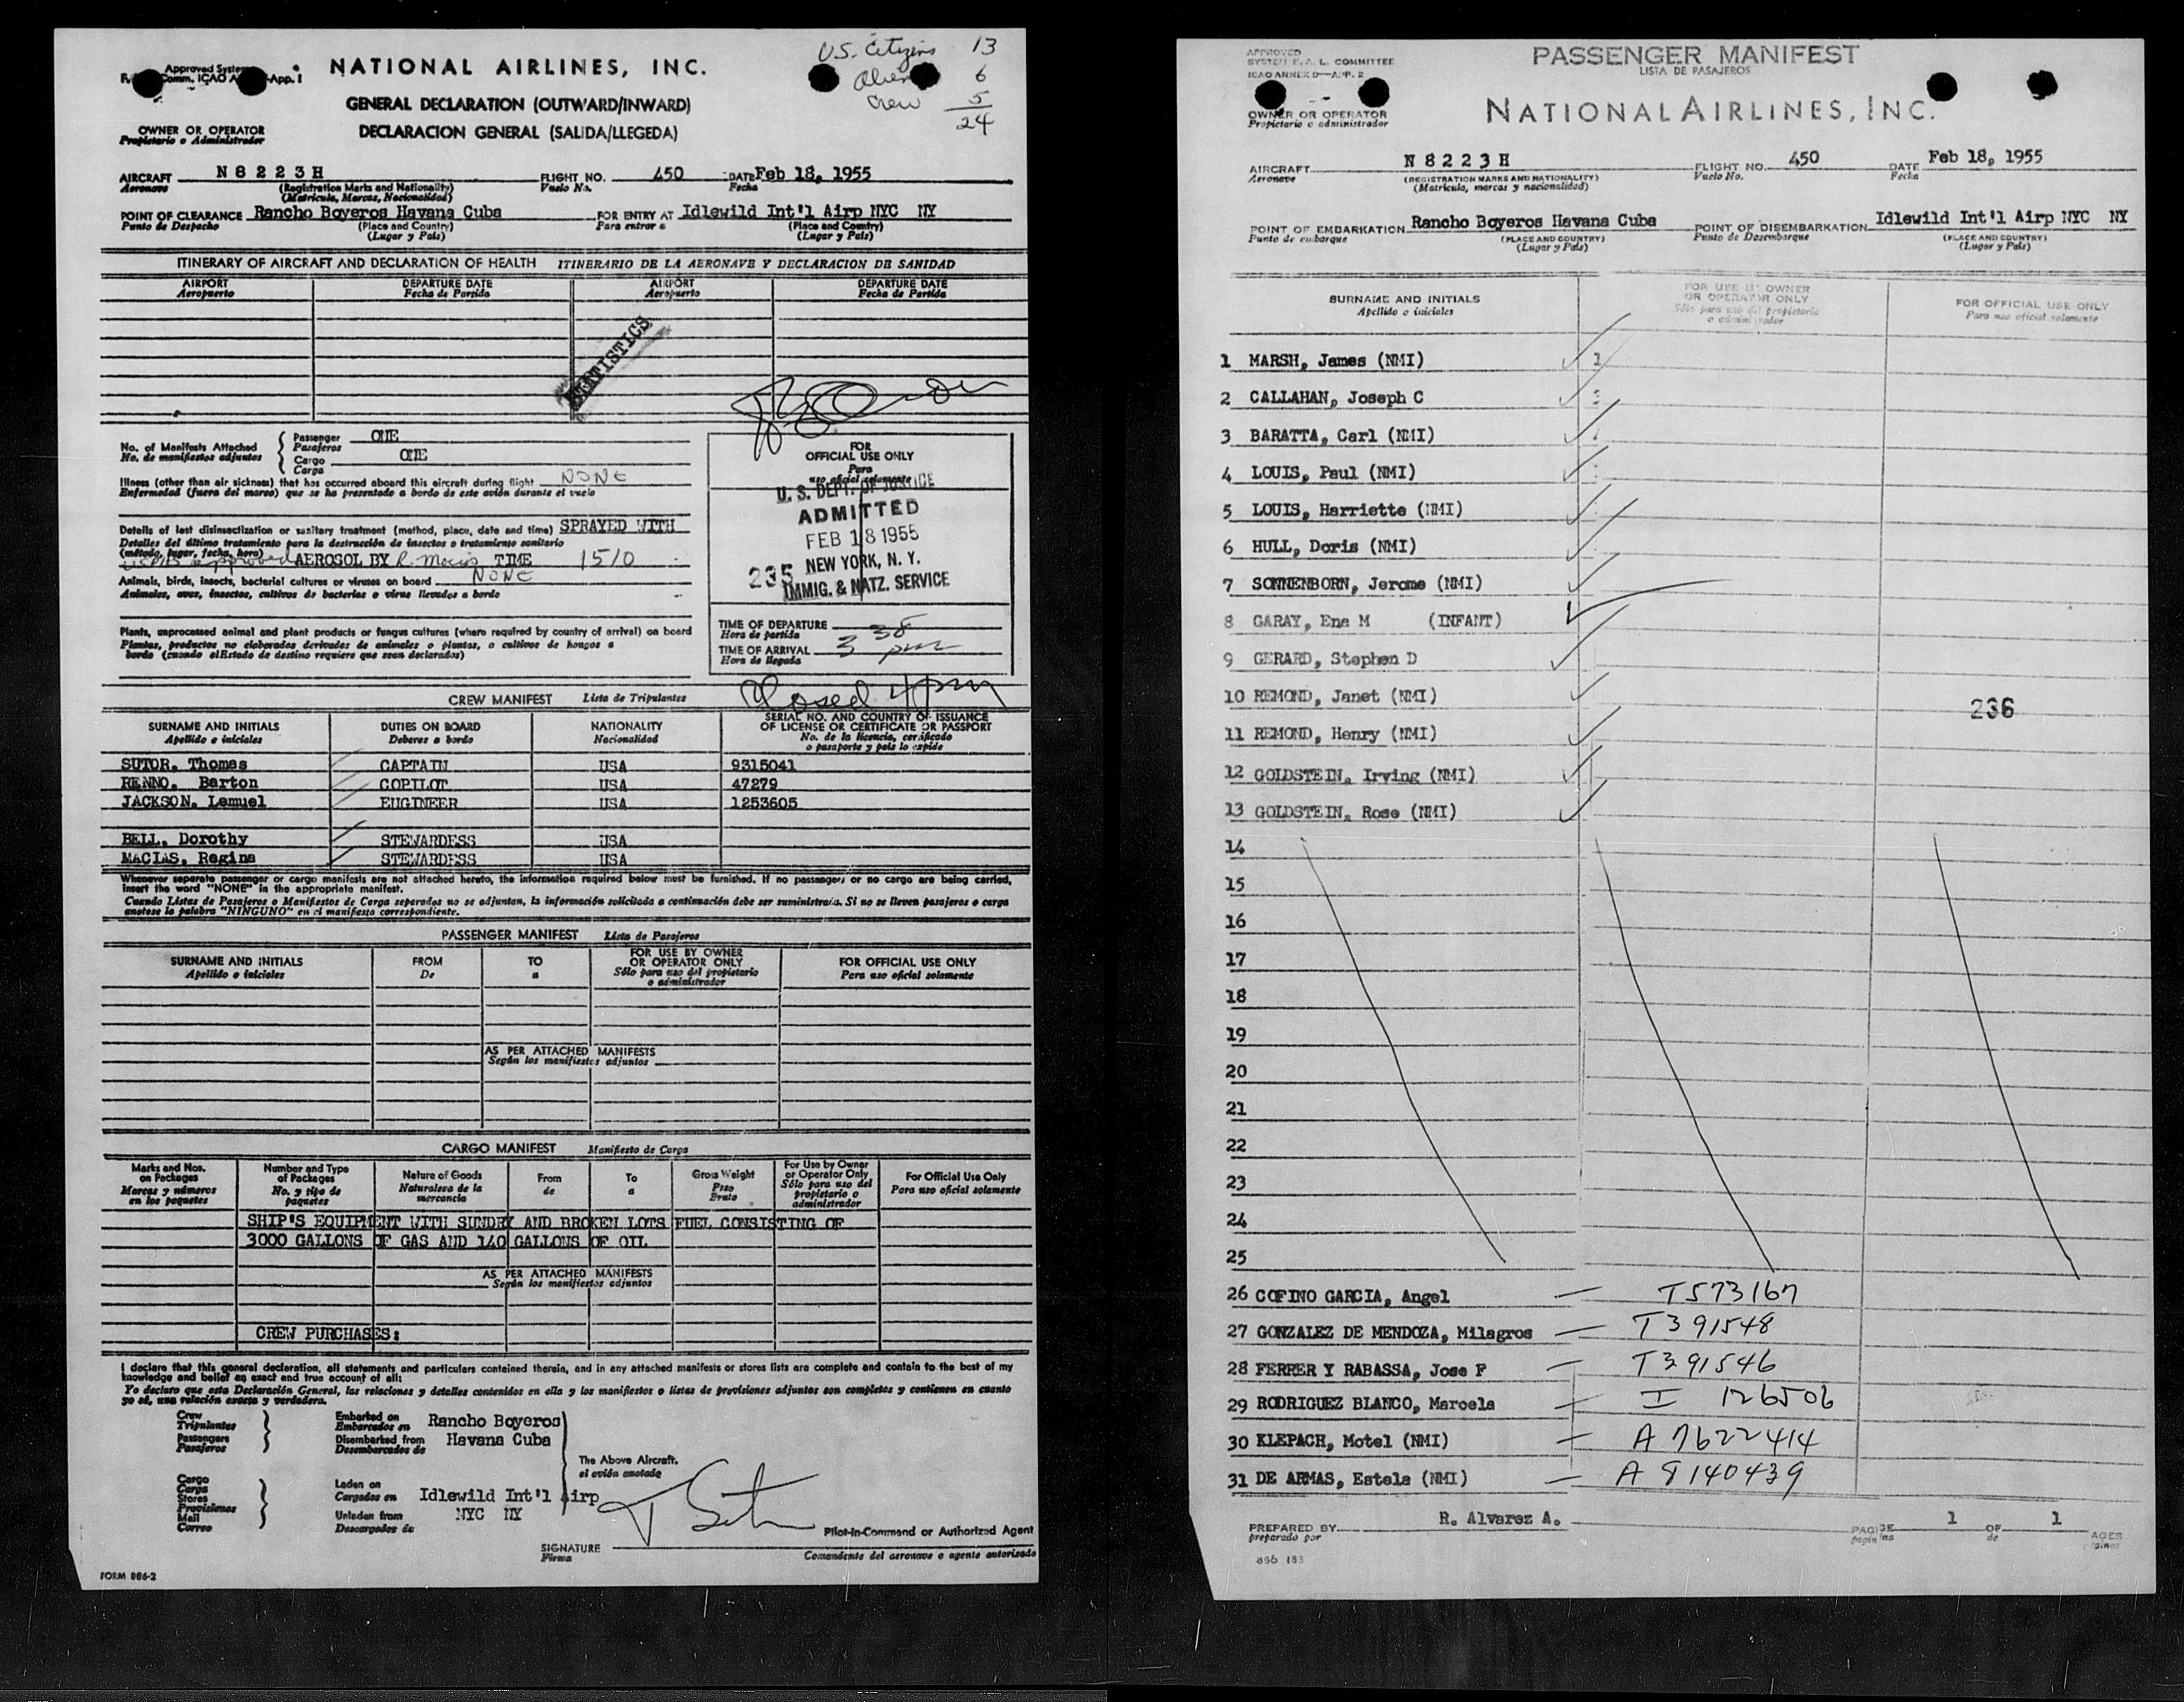 U.S. Citizens 13
Aliens 6
Crew 5
24
Approved System
Comm. ICAO App. 1
NATIONAL AIRLINES, INC.
GENERAL DECLARATION (OUTWARD/INWARD)
DECLARACION GENERAL (SALIDA/LLEGEDA)
OWNER OR OPERATOR
Propietario o Administrador
AIRCRAFT N 8 2 2 3 H FLIGHT NO. 450 DATE Feb 18, 1955
Aeronave (Registration Marks and Nationality) Vuelo No. Fecha
(Matrícula, Marcas, Nacionalidad)
POINT OF CLEARANCE Rancho Boyeros Havana Cuba FOR ENTRY AT Idlewild Int'l Airp NYC NY
Punto de Despacho (Place and Country) Para entrar a (Place and Country)
(Lugar y País) (Lugar y País)
ITINERARY OF AIRCRAFT AND DECLARATION OF HEALTH ITINERARIO DE LA AERONAVE Y DECLARACION DE SANIDAD
AIRPORT DEPARTURE DATE AIRPORT DEPARTURE DATE
Aeropuerto Fecha de Partida Aeropuerto Fecha de Partida
STATISTICS
No. of Manifests Attached Passenger ONE
No. de manifiestos adjuntos Pasajeros
Cargo ONE
Carga
Illness (other than air sickness) that has occurred aboard this aircraft during flight NONE
Enfermedad (fuera del mareo) que se ha presentado a bordo de este avión durante el vuelo
Details of last disinsectization or sanitary treatment (method, place, date and time) SPRAYED WITH
Detalles del último tratamiento para la destrucción de insectos o tratamiento sanitario
(método, lugar, fecha, hora)
approved AEROSOL BY R. Macias TIME 1510
Animals, birds, insects, bacterial cultures or viruses on board NONE
Animales, aves, insectos, cultivos de bacterias o virus llevados a bordo
Plants, unprocessed animal and plant products or fungus cultures (where required by country of arrival) on board
Plantas, productos no elaborados derivados de animales o plantas, o cultivos de hongos a
bordo (cuando el Estado de destino requiere que sean declarados)
FOR
OFFICIAL USE ONLY
Para
uso oficial solamente
U. S. DEPT. OF JUSTICE
ADMITTED
FEB 18 1955
235 NEW YORK, N. Y.
IMMIG. & NATZ. SERVICE
TIME OF DEPARTURE
Hora de partida
TIME OF ARRIVAL 3 38 pm
Hora de llegada
Closed 4 pm
CREW MANIFEST Lista de Tripulantes
SURNAME AND INITIALS DUTIES ON BOARD NATIONALITY SERIAL NO. AND COUNTRY OF ISSUANCE
OF LICENSE OR CERTIFICATE OR PASSPORT
Apellido e iniciales Deberes a bordo Nacionalidad No. de la licencia, cerificado
o pasaporte y país lo expide
SUTOR, Thomas CAPTAIN USA 9315041
RENNO, Barton COPILOT USA 47279
JACKSON, Lemuel ENGINEER USA 1253605
BELL, Dorothy STEWARDESS USA
MACIAS, Regina STEWARDESS USA
Whenever separate passenger or cargo manifests are not attached hereto, the information required below must be furnished. If no passengers or no cargo are being carried,
insert the word "NONE" in the appropriate manifest.
Cuando Listas de Pasajeros o Manifiestos de Carga separados no se adjuntan, la información solicitada a continuación debe ser suministrada. Si no se lleven pasajeros o carga
anotese la palabra "NINGUNO" en el manifiesto correspondiente.
PASSENGER MANIFEST Lista de Pasajeros
SURNAME AND INITIALS FROM TO FOR USE BY OWNER
OR OPERATOR ONLY FOR OFFICIAL USE ONLY
Apellido e iniciales De a Sólo para uso del propietario
o administrador Para uso oficial solamente
AS PER ATTACHED MANIFESTS
Según los manifiestos adjuntos
CARGO MANIFEST Manifiesto de Carga
Marks and Nos.
on Packages
Marcas y números
en los paquetes
Number and Type
of Packages
No. y tipo de
paquetes
Nature of Goods
Naturaleza de la
mercancia
From
de
To
a
Gross Weight
Peso
Bruto
For Use by Owner
or Operator Only
Sólo para uso del
propietario o
administrador
For Official Use Only
Para uso oficial solamente
SHIP'S EQUIPMENT WITH SUNDRY AND BROKEN LOTS FUEL CONSISTING OF
3000 GALLONS OF GAS AND 140 GALLONS OF OIL
AS PER ATTACHED MANIFESTS
Según los manifiestos adjuntos
CREW PURCHASES:
I declare that this general declaration, all statements and particulars contained therein, and in any attached manifests or stores lists are complete and contain to the best of my
knowledge and belief an exact and true account of all:
Yo declaro que esta Declaración General, las relaciones y detalles contenidos en ella y los manifiestos o listas de provisiones adjuntos son completos y contienen en cuanto
yo sé, una relación exacta y verdadera.
Crew
Tripulantes
Passengers
Pasajeros
Embarked on Rancho Boyeros
Embarcados en
Disembarked from Havana Cuba
Desembarcados de
The Above Aircraft.
el avión anotado
Cargo
Carga
Stores
Provisiones
Mail
Correo
Laden on
Cargados en Idlewild Int'l Airp
Unladen from NYC NY
Descargados de
T Sutor
Pilot-in-Command or Authorized Agent
SIGNATURE
Firma Comandante del aeronave o agente autorizado
FORM 886-2
APPROVED
SYSTEM F. A. L. COMMITTEE
ICAO ANNEX D—APP. 2
PASSENGER MANIFEST
LISTA DE PASAJEROS
NATIONAL AIRLINES, INC.
OWNER OR OPERATOR
Propietario o administrador
AIRCRAFT N 8 2 2 3 H FLIGHT NO. 450 DATE Feb 18, 1955
Aeronave (REGISTRATION MARKS AND NATIONALITY) Vuelo No. Fecha
(Matrícula, marcas y nacionalidad)
POINT OF EMBARKATION Rancho Boyeros Havana Cuba POINT OF DISEMBARKATION Idlewild Int'l Airp NYC NY
Punto de embarque (PLACE AND COUNTRY) Punto de Desembarque (PLACE AND COUNTRY)
(Lugar y País) (Lugar y País)
SURNAME AND INITIALS
Apellido e iniciales
FOR USE BY OWNER
OR OPERATOR ONLY
Sólo para uso del propietario
o administrador
FOR OFFICIAL USE ONLY
Para uso oficial solamente
1 MARSH, James (NMI)
2 CALLAHAN, Joseph C
3 BARATTA, Carl (NMI)
4 LOUIS, Paul (NMI)
5 LOUIS, Harriette (NMI)
6 HULL, Doris (NMI)
7 SONNENBORN, Jerome (NMI)
8 GARAY, Ena M (INFANT)
9 GERARD, Stephen D
10 REMOND, Janet (NMI)
236
11 REMOND, Henry (NMI)
12 GOLDSTEIN, Irving (NMI)
13 GOLDSTEIN, Rose (NMI)
14
15
16
17
18
19
20
21
22
23
24
25
26 COFINO GARCIA, Angel — T573167
27 GONZALEZ DE MENDOZA, Milagros — T391548
28 FERRER Y RABASSA, Jose F — T391546
29 RODRIGUEZ BLANCO, Marcela — I 126506
30 KLEPACH, Motel (NMI) — A 7622414
31 DE ARMAS, Estela (NMI) — A 8140439
PREPARED BY R. Alvarez A. PAGE 1 OF 1 PAGES
preparado por pagina de paginas
866 183